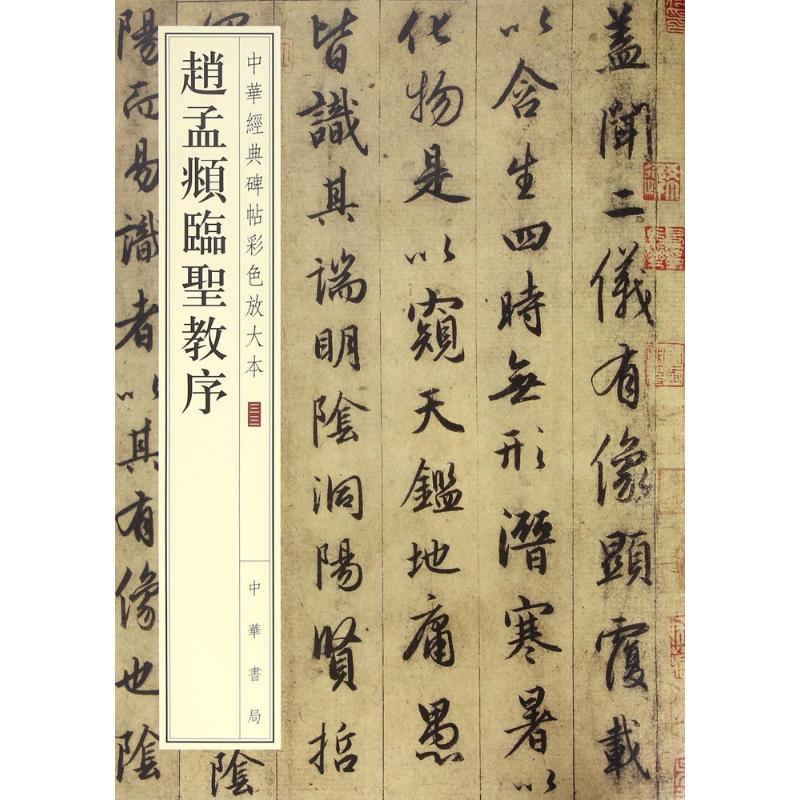 盖聞二儀有像顯覆載
以含生四時無形潛寒暑以
化物是以窺天鑑地庸愚
皆識其端明陰洞陽賢哲
中華經典碑帖彩色放大本 三三
中華書局
趙孟頫臨聖教序
陰
陽而易識者以其有像也陰